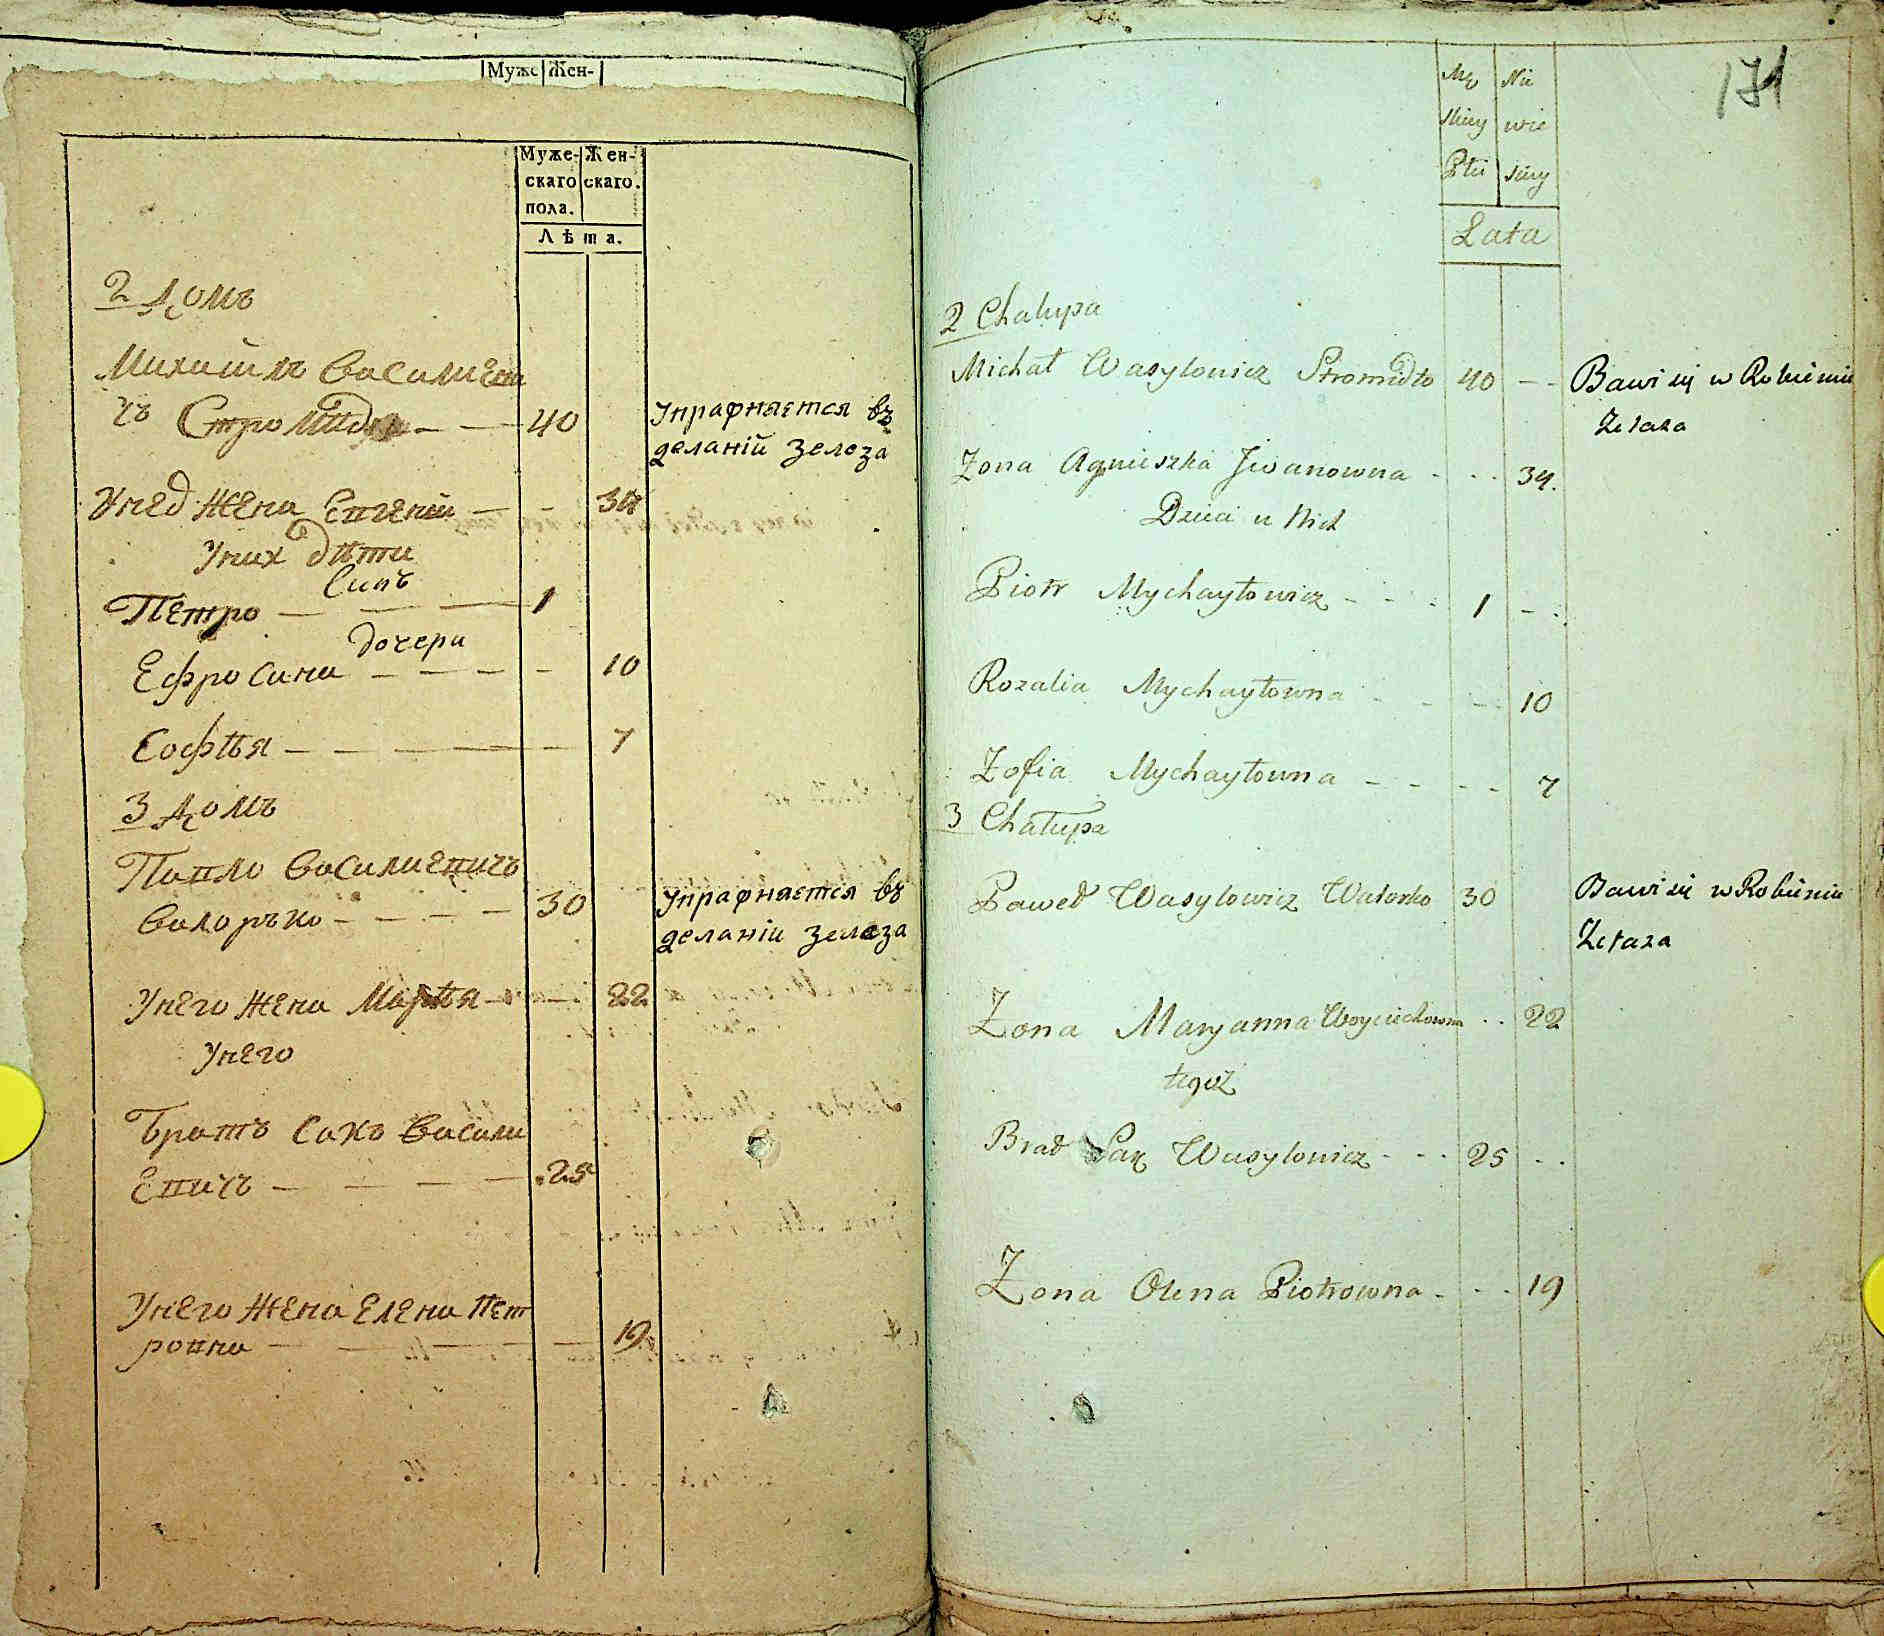 Муже Жен-
Муже- Жен-
скаго скаго.
пола.
Лѣта.
2 Домъ
Михайлъ Василиеви
чъ Стромидло 40
Упрафняется въ
деланiй зелеза
Унед жена Евгений 34
Уних дѣти
Синъ
Петро 1
дочери
Ефросина 10
Софѣя 7
3 Домъ
Павло Василиевичъ
Валорько 30
Упрафняется въ
деланiй зелеза
Унего жена Марѣя 22
Унего
Братъ Сахъ Васили
Евичъ 25
Унего жена Елена Пет
ровна 19
171
Mę Nie
skiey wie
Płci skiey
Lata
2 Chalupa
Michał Wasylowicz Stromidło 40
Bawi się w Robieniu
Zelaza
Zona Agnieszka Jwanowna 34.
Dzieci u Nich
Piotr Mychayłowicz 1
Rozalia Mychayłowna 10
Zofia Mychayłowna 7
3 Chałupa
Paweł Wasylowicz Walorko 30
Bawi się w Robieniu
Zelaza
Zona Maryanna Woyciechowna 22
tegoż
Brat Sax Wasylowicz 25
Zona Olena Piotrowna 19